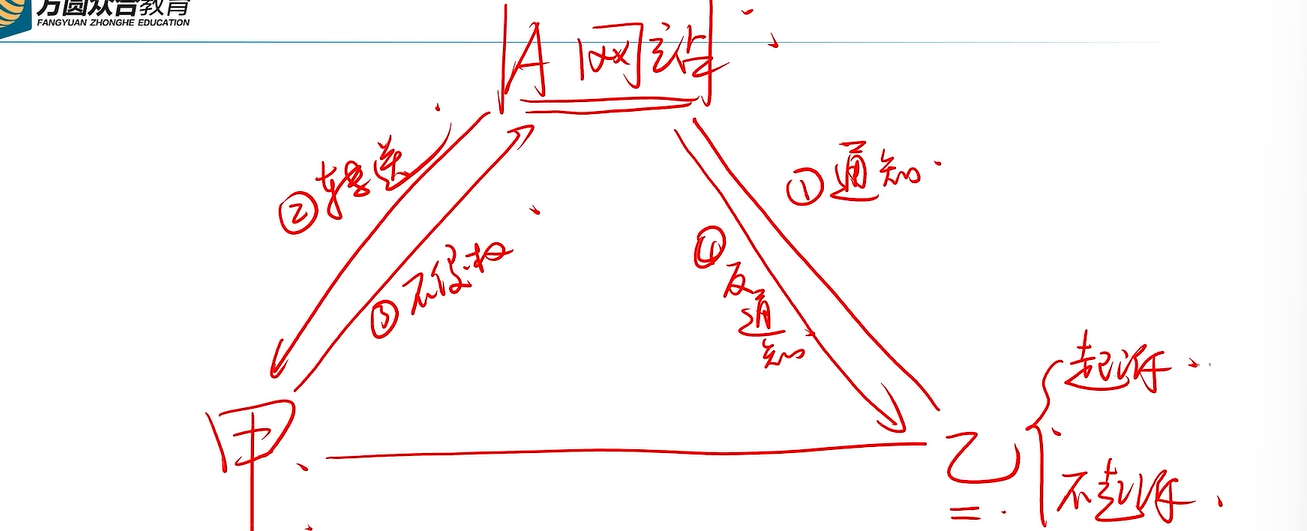 方圆众合教育
FANGYUAN ZHONGHE EDUCATION
A 网站
②转送
①通知
③不侵权
④反通知
甲
乙
起诉
不起诉